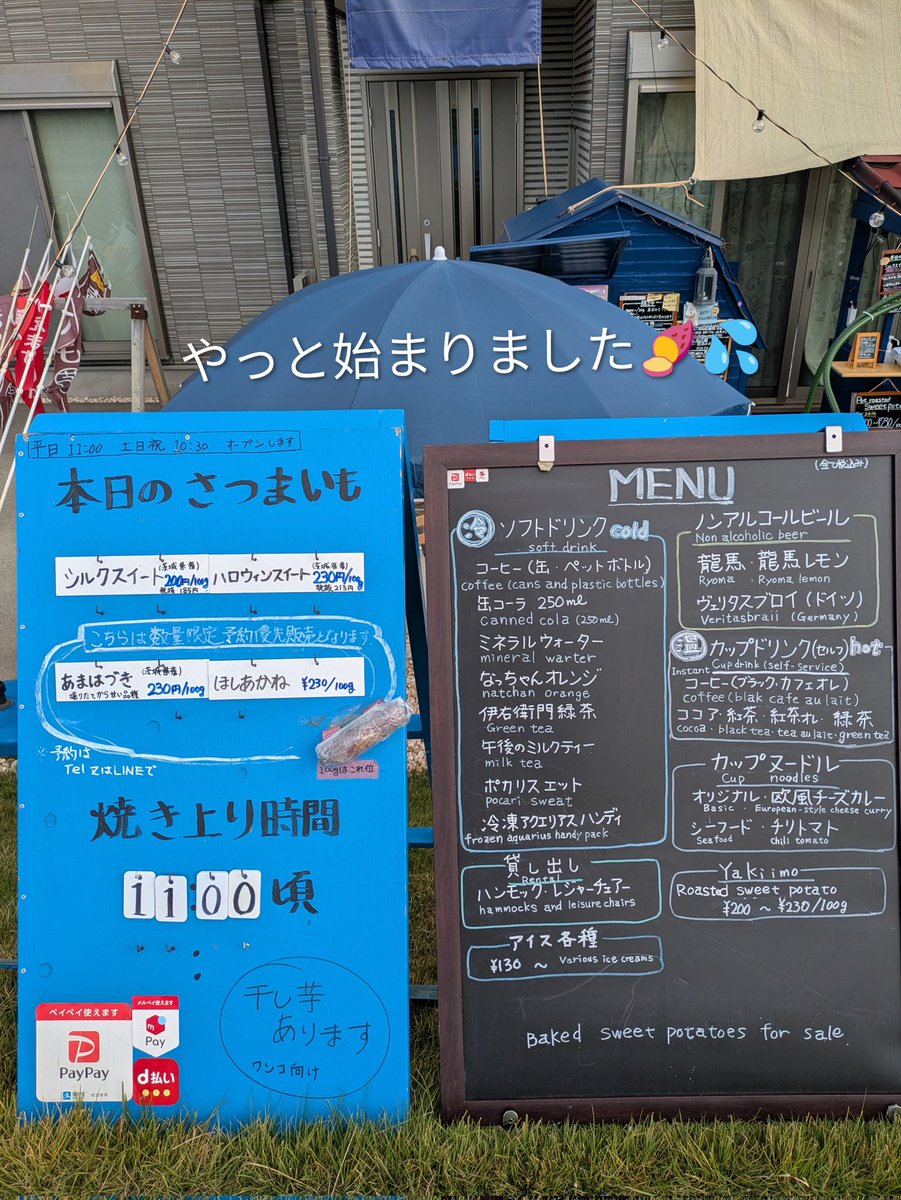 やっと始まりました🍠💦
平日 11:00 土日祝 10:30 オープンします
本日のさつまいも
シルクスイート (茨城県産) 200円/100g 税抜 185円
ハロウィンスイート (茨城県産) 230円/100g 税抜 213円
こちらは数量限定 予約優先販売となります
あまはづき (茨城県産) 掘りたてから甘い品種 230円/100g
ほしあかね ¥230/100g
※予約は
Tel 又はLINEで
100gはこれ位
焼き上り時間
11:00頃
干し芋
あります
ワンコ向け
ペイペイ使えます
PayPay
メルペイ使えます
Pay
d払い
PayPay
MENU
(全て税込み)
冷 ソフトドリンク cold
soft drink
コーヒー(缶・ペットボトル)
coffee (cans and plastic bottles)
缶コーラ 250ml
canned cola (250ml)
ミネラルウォーター
mineral warter
なっちゃんオレンジ
natchan orange
伊右衛門緑茶
Green tea
午後のミルクティー
milk tea
ポカリスエット
pocari sweat
冷凍アクエリアスハンディ
frozen aquarius handy pack
貸し出し
Rental
ハンモック・レジャーチェアー
hammocks and leisure chairs
アイス各種
¥130 ~ Various ice creams
ノンアルコールビール
Non alcoholic beer
龍馬・龍馬レモン
Ryoma . Ryoma lemon
ヴェリタスブロイ(ドイツ)
Veritasbraii (Germany)
温 カップドリンク(セルフ) hot
Instant Cup drink (self-service)
コーヒー(ブラック・カフェオレ)
coffee (blak cafe au lait)
ココア・紅茶・紅茶オレ・緑茶
cocoa・black tea・tea au lait・green tea
カップヌードル
Cup noodles
オリジナル・欧風チーズカレー
Basic・European-style cheese curry
シーフード・チリトマト
Seafood・chili tomato
Yakiimo
Roasted sweet potato
¥200 ~ ¥230/100g
Baked sweet potatoes for sale